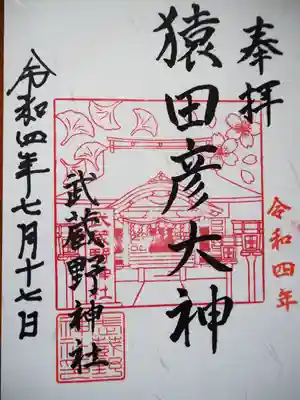 奉拝
猿田彦大神
令和四年
武蔵野神社
令和四年七月十七日